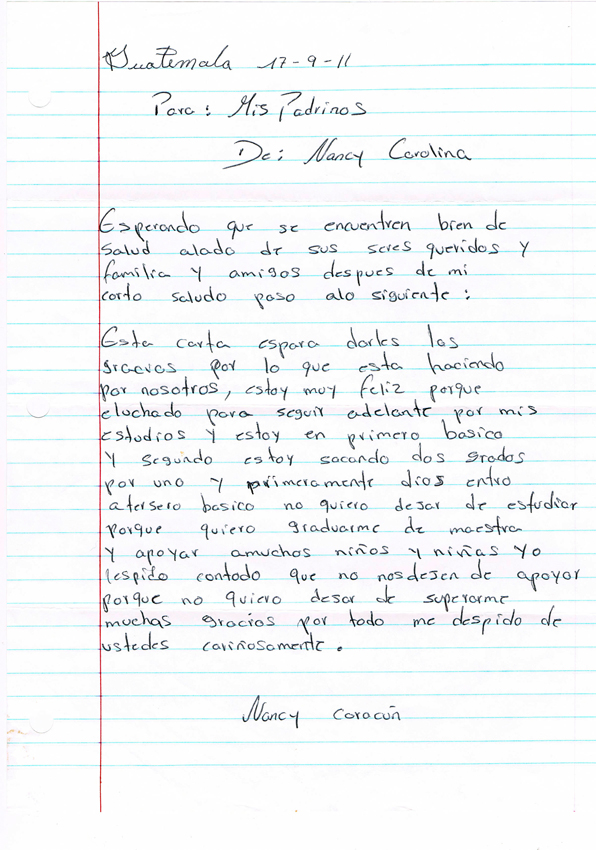 Guatemala 17-9-11
Para: Mis Padrinos
De: Nancy Carolina
Esperando que se encuentren bien de
salud alado de sus seres queridos y
familia y amigos despues de mi
corto saludo paso alo siguiente:
Esta carta espara darles las
gracias por lo que esta haciendo
por nosotros, estoy muy feliz porque
eluchado para seguir adelante por mis
estudios y estoy en primero basico
y segundo estoy sacando dos grados
por uno y primeramente dios entro
atersero basico no quiero dejar de estudiar
porque quiero graduarme de maestra
y apoyar amuchos niños y niñas yo
lespido contodo que no nosdejen de apoyar
porque no quiero dejar de superarme
muchas gracias por todo me despido de
ustedes cariñosamente.
Nancy Coracún